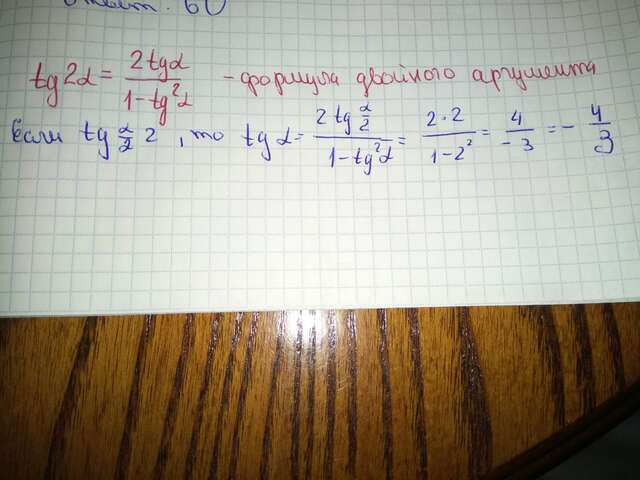 Ответ: 60
tg2α = 2tgα / 1-tg²α - формула двойного аргумента
Если tg α/2 2, то tg α = 2 tg α/2 / 1-tg²α = 2·2 / 1-2² = 4 / -3 = - 4/3